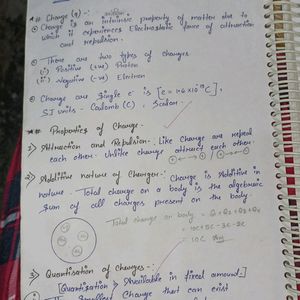 # Charge (q) :-
Charge is an intrinsic property of matter due to
which it experiences Electrostatic force of attraction
and repulsion.
There are two types of charges
(i) Positive (+ve) Proton
(ii) Negative (-ve) Electron
Charge on single e⁻ is [e = 1.6×10⁻¹⁹C].
SI units - Coulomb (C), Scalar.
# Properties of Charge.
1) Attraction and Repulsion:- Like Charge are repeal
each other. Unlike charge attract each other.
2) Additive nature of Charge:- Charge is additive in
nature. Total charge on a body is the algebraic
sum of all charges present on the body
Total charge on body = Q1+Q2+Q3+Q4
= 10C+5C-3C-2C
= 10C
3) Quantisation of charges -
[Quantisation → Available in fixed amount]
Smallest Charge that can exist